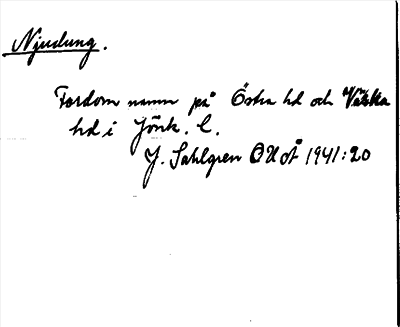 Njudung.
Fordom namn på Östra hd och Västra
hd i Jönk. l.
J. Sahlgren OUÅ 1941:20